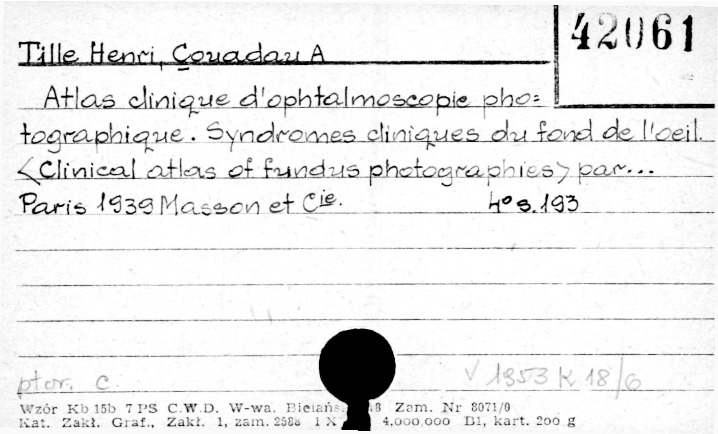 42061
Tille Henri, Couadau A
Atlas clinique d'ophtalmoscopie pho=
tographique. Syndromes cliniques du fond de l'oeil.
<Clinical atlas of fundus photographies> par...
Paris 1939 Masson et Cie. 4° s. 193
ptor. c. V 1953 K 18/6
Wzór Kb 15b 7 PS C.W.D. W-wa. 8 Zam. Nr 8071/0
Kat. Zakł. Graf., Zakł. 1, zam. 2588 1 X 4,000,000 B1, kart. 200 g